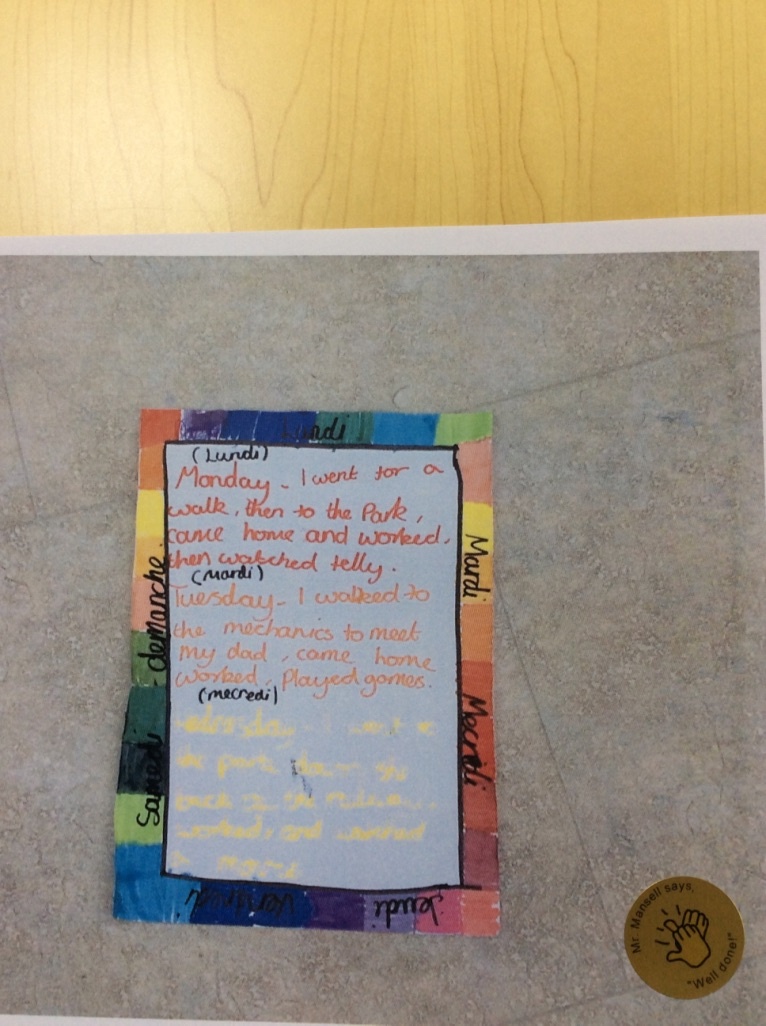 Lundi
(Lundi)
Monday - I went for a
walk, then to the Park,
came home and worked,
then watched telly.
(Mardi)
Tuesday - I walked to
the mechanics to meet
My dad, came home
worked, Played games.
(mecredi)
the park
worked, and watched
Mardi
Mecredi
Jeudi
Vendredi
Samedi
demanche
Mr. Mansell says,
"Well done!"